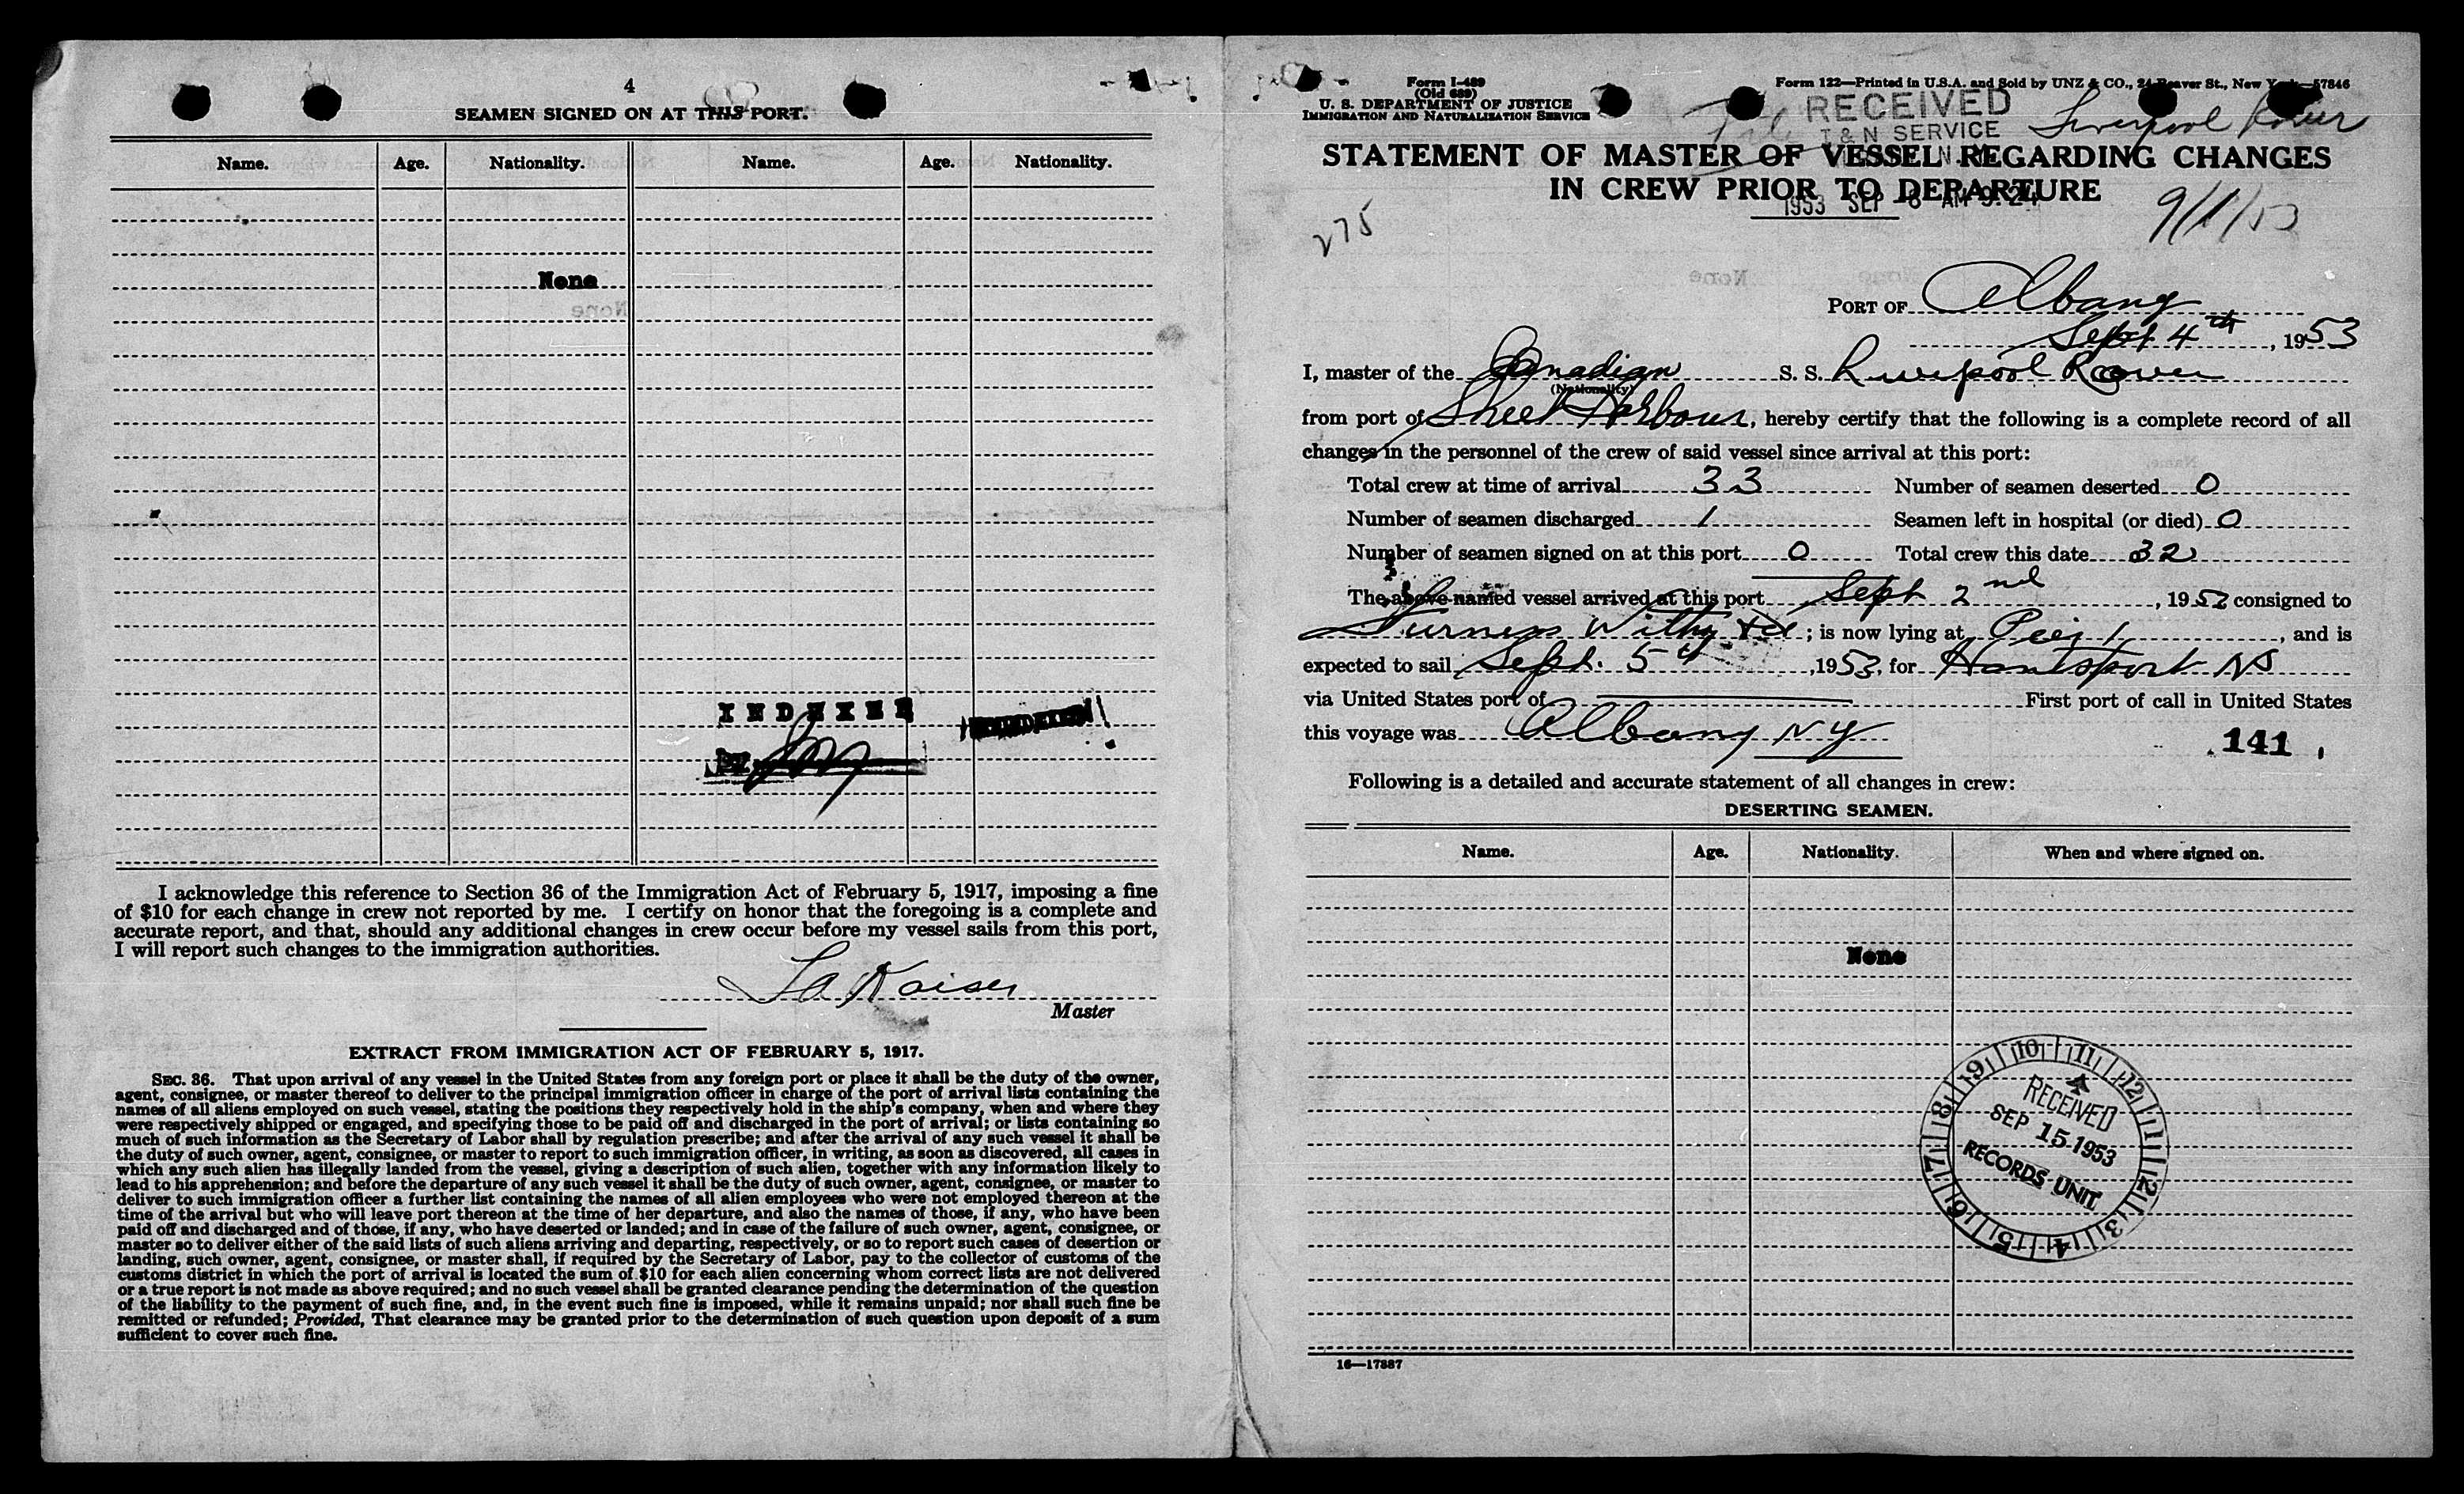 4
SEAMEN SIGNED ON AT THIS PORT.
Name. Age. Nationality. Name. Age. Nationality.
None
INDEXED
I acknowledge this reference to Section 36 of the Immigration Act of February 5, 1917, imposing a fine
of $10 for each change in crew not reported by me. I certify on honor that the foregoing is a complete and
accurate report, and that, should any additional changes in crew occur before my vessel sails from this port,
I will report such changes to the immigration authorities.
Kaiser
Master
EXTRACT FROM IMMIGRATION ACT OF FEBRUARY 5, 1917.
SEC. 36. That upon arrival of any vessel in the United States from any foreign port or place it shall be the duty of the owner,
agent, consignee, or master thereof to deliver to the principal immigration officer in charge of the port of arrival lists containing the
names of all aliens employed on such vessel, stating the positions they respectively hold in the ship's company, when and where they
were respectively shipped or engaged, and specifying those to be paid off and discharged in the port of arrival; or lists containing so
much of such information as the Secretary of Labor shall by regulation prescribe; and after the arrival of any such vessel it shall be
the duty of such owner, agent, consignee, or master to report to such immigration officer, in writing, as soon as discovered, all cases in
which any such alien has illegally landed from the vessel, giving a description of such alien, together with any information likely to
lead to his apprehension; and before the departure of any such vessel it shall be the duty of such owner, agent, consignee, or master to
deliver to such immigration officer a further list containing the names of all alien employees who were not employed thereon at the
time of the arrival but who will leave port thereon at the time of her departure, and also the names of those, if any, who have been
paid off and discharged and of those, if any, who have deserted or landed; and in case of the failure of such owner, agent, consignee, or
master so to deliver either of the said lists of such aliens arriving and departing, respectively, or so to report such cases of desertion or
landing, such owner, agent, consignee, or master shall, if required by the Secretary of Labor, pay to the collector of customs of the
customs district in which the port of arrival is located the sum of $10 for each alien concerning whom correct lists are not delivered
or a true report is not made as above required; and no such vessel shall be granted clearance pending the determination of the question
of the liability to the payment of such fine, and, in the event such fine is imposed, while it remains unpaid; nor shall such fine be
remitted or refunded; Provided, That clearance may be granted prior to the determination of such question upon deposit of a sum
sufficient to cover such fine.
Form I-489
(Old 689)
U. S. DEPARTMENT OF JUSTICE
IMMIGRATION AND NATURALIZATION SERVICE
Form 122—Printed in U.S.A. and Sold by UNZ & CO., 24 Beaver St., New York—57846
RECEIVED
I & N SERVICE
Liverpool Rover
STATEMENT OF MASTER OF VESSEL REGARDING CHANGES
IN CREW PRIOR TO DEPARTURE
1953 SEP 8 AM 9:24
9/1/53
275
PORT OF Albany
Sept 4th, 1953
I, master of the Canadian S. S. Liverpool Rover
(Nationality)
from port of Sheet Harbour, hereby certify that the following is a complete record of all
changes in the personnel of the crew of said vessel since arrival at this port:
Total crew at time of arrival 33 Number of seamen deserted 0
Number of seamen discharged 1 Seamen left in hospital (or died) 0
Number of seamen signed on at this port 0 Total crew this date 32
The above-named vessel arrived at this port Sept 2nd, 1952 consigned to
Furness Withy Ltd; is now lying at Pier 1, and is
expected to sail Sept. 5th, 1953, for Hantsport NS
via United States port of First port of call in United States
this voyage was Albany NY
141
Following is a detailed and accurate statement of all changes in crew:
DESERTING SEAMEN.
Name. Age. Nationality. When and where signed on.
None
10 11 12 1 2 3 4 5 6 7 8 9
RECEIVED
SEP 15 1953
RECORDS UNIT
16—17887